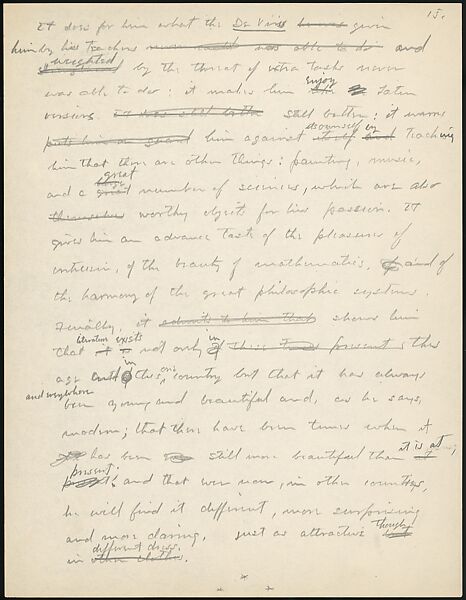 15.
It does for him what the De Viris given
him by his teachers and
weighted by the threat of extra tasks never
was able to do: it makes him enjoy Latin
version. It was still better still better: it warns
puts him on guard him against itself in teaching
him that there are other things: painting, music,
and a great number of sciences, which are also
themselves worthy objects for his passion. It
gives him an advance taste of the pleasures of
criticism, of the beauty of mathematics, and of
the harmony of the great philosophic systems.
Finally, it admits to him that shows him
that literature exists not only in present, this
age in this one country but that it has always
and everywhere
been young and beautiful and, as he says,
modern; that there have been times when it
has been still more beautiful than it is at
present; and that even now, in other countries,
he will find it different, more surprising
and more daring, just as attractive though
in different dress.
* * *